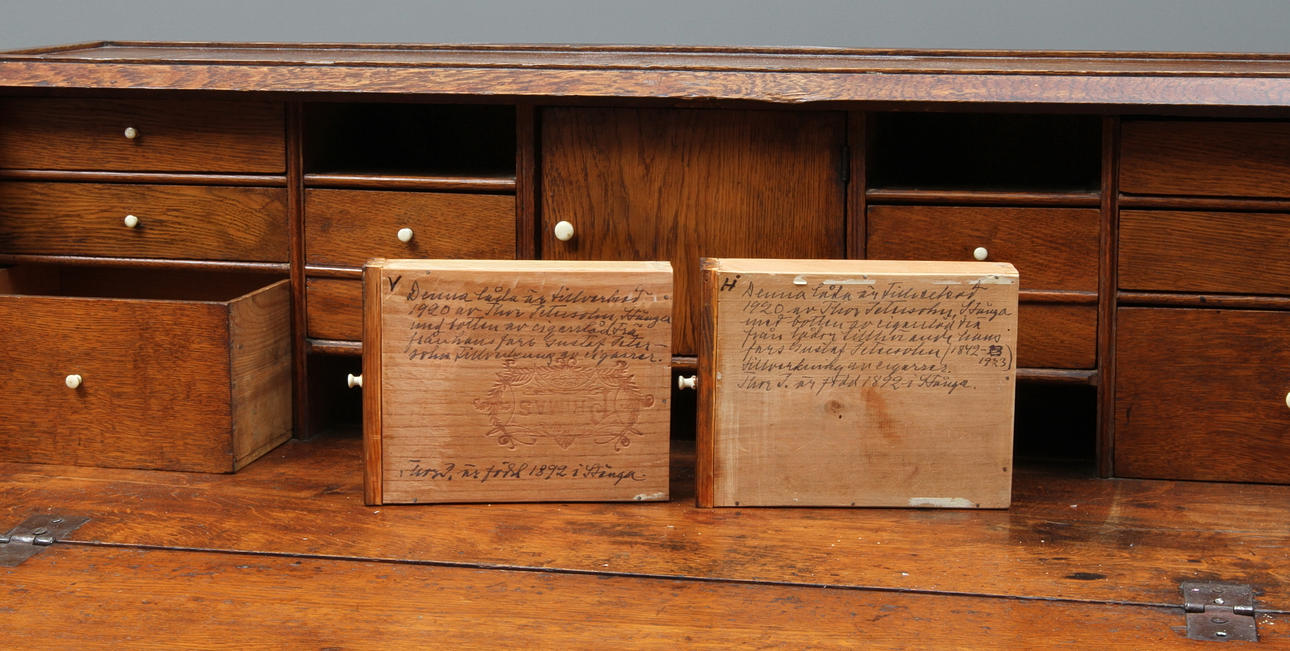 V
Denna låda är tillverkad
1920 av Thor Petersohn, Stånga
med botten av cigarrlådträ
från hans fars Gustaf Peter-
sohn tillverkning av cigarrer.
PRIMAS
Thor P. är född 1892 i Stånga.
H
Denna låda är tillverkad
1920 av Thor Petersohn, Stånga
med botten av cigarrlådträ
från lådor tillhörande hans
fars Gustaf Petersohn (1842-
1923)
tillverkning av cigarrer.
Thor P. är född 1892 i Stånga.